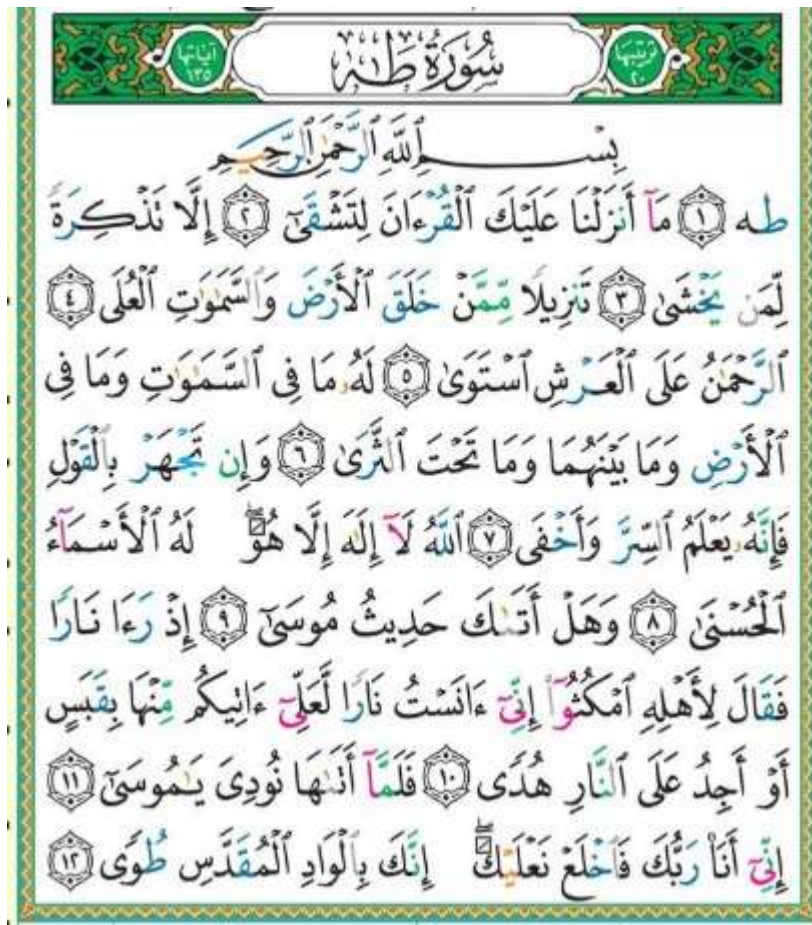 ترتيبها ٢٠ سُورَةُ طٰهٰ آياتها ١٣٥
بِسْمِ ٱللَّهِ ٱلرَّحْمَٰنِ ٱلرَّحِيمِ
طه ١ مَآ أَنزَلْنَا عَلَيْكَ ٱلْقُرْءَانَ لِتَشْقَىٰٓ ٢ إِلَّا تَذْكِرَةً
لِّمَن يَخْشَىٰ ٣ تَنزِيلًا مِّمَّنْ خَلَقَ ٱلْأَرْضَ وَٱلسَّمَٰوَٰتِ ٱلْعُلَى ٤
ٱلرَّحْمَٰنُ عَلَى ٱلْعَرْشِ ٱسْتَوَىٰ ٥ لَهُۥ مَا فِى ٱلسَّمَٰوَٰتِ وَمَا فِى
ٱلْأَرْضِ وَمَا بَيْنَهُمَا وَمَا تَحْتَ ٱلثَّرَىٰ ٦ وَإِن تَجْهَرْ بِٱلْقَوْلِ
فَإِنَّهُۥ يَعْلَمُ ٱلسِّرَّ وَأَخْفَى ٧ ٱللَّهُ لَآ إِلَٰهَ إِلَّا هُوَ ۖ لَهُ ٱلْأَسْمَآءُ
ٱلْحُسْنَىٰ ٨ وَهَلْ أَتَىٰكَ حَدِيثُ مُوسَىٰٓ ٩ إِذْ رَءَا نَارًا
فَقَالَ لِأَهْلِهِ ٱمْكُثُوٓا۟ إِنِّىٓ ءَانَسْتُ نَارًا لَّعَلِّىٓ ءَاتِيكُم مِّنْهَا بِقَبَسٍ
أَوْ أَجِدُ عَلَى ٱلنَّارِ هُدًى ١٠ فَلَمَّآ أَتَىٰهَا نُودِىَ يَٰمُوسَىٰٓ ١١
إِنِّىٓ أَنَا۠ رَبُّكَ فَٱخْلَعْ نَعْلَيْكَ ۖ إِنَّكَ بِٱلْوَادِ ٱلْمُقَدَّسِ طُوًى ١٢